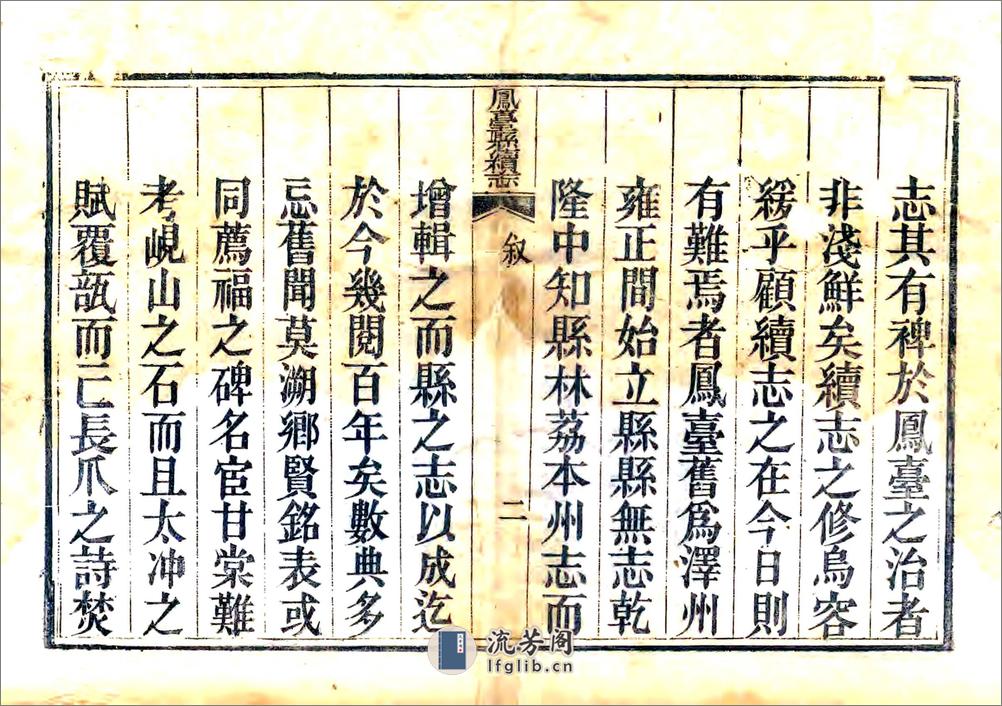 志其有裨於鳳臺之治者
非淺鮮矣續志之修烏容
緩乎顧續志之在今日則
有難焉者鳳臺舊爲澤州
雍正間始立縣縣無志乾
隆中知縣林荔本州志而
鳳臺縣續志
叙
二
增輯之而縣之志以成迄
於今幾閱百年矣數典多
忘舊聞莫溯鄉賢銘表或
同薦福之碑名宦甘棠難
考峴山之石而且太冲之
賦覆瓿而已長爪之詩焚
流芳阁
lfglib.cn